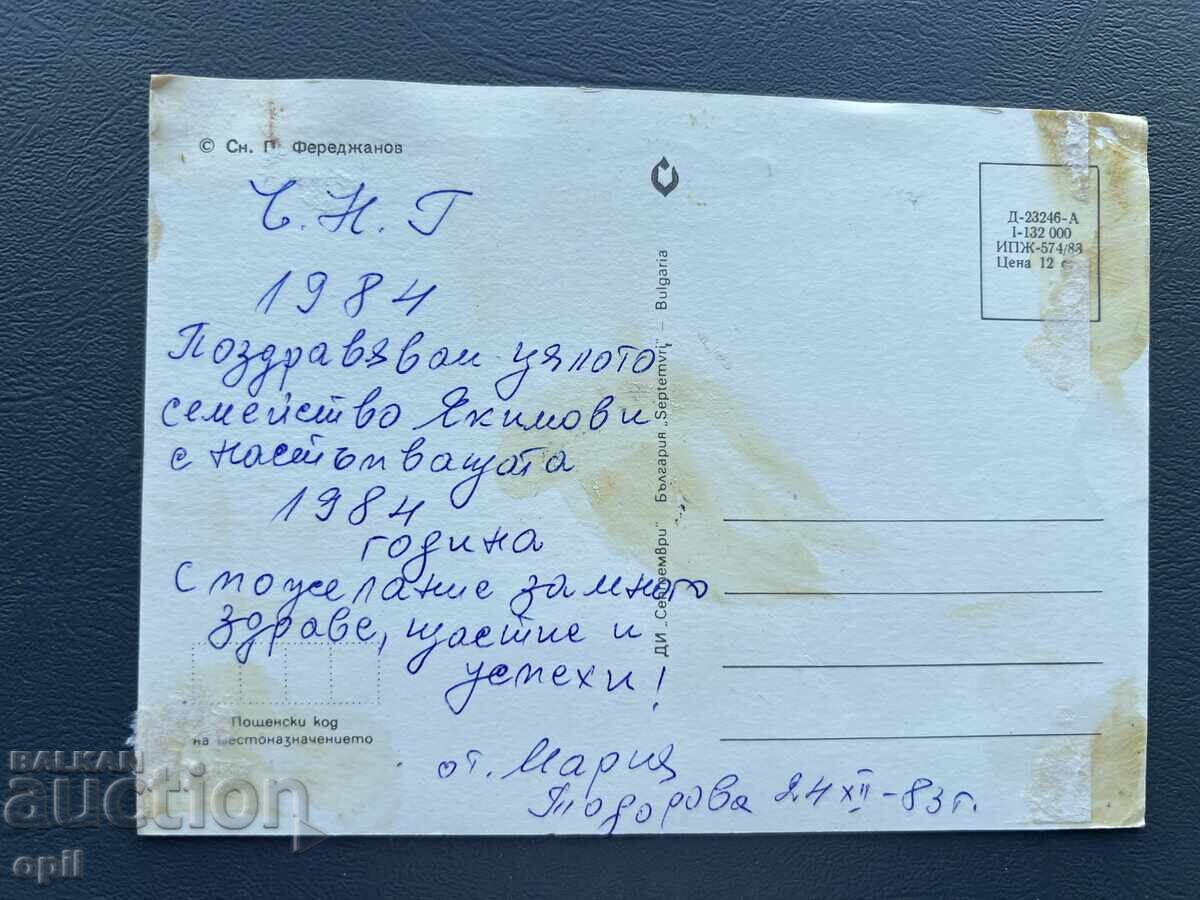 © Сн. Г. Фереджанов
Ч. Н. Г
1984
Поздравявам цялото
семейство Якимови
с настъпващата
1984
година
С пожелание за много
здраве, щастие и
успехи!
от. Мария
Тодорова 24 XII - 83 г.
Пощенски код
на местоназначението
ДИ „Септември" България „Septemvri" – Bulgaria
Д-23246-А
I-132 000
ИПЖ-574/83
Цена 12
BALKAN
auction
opil